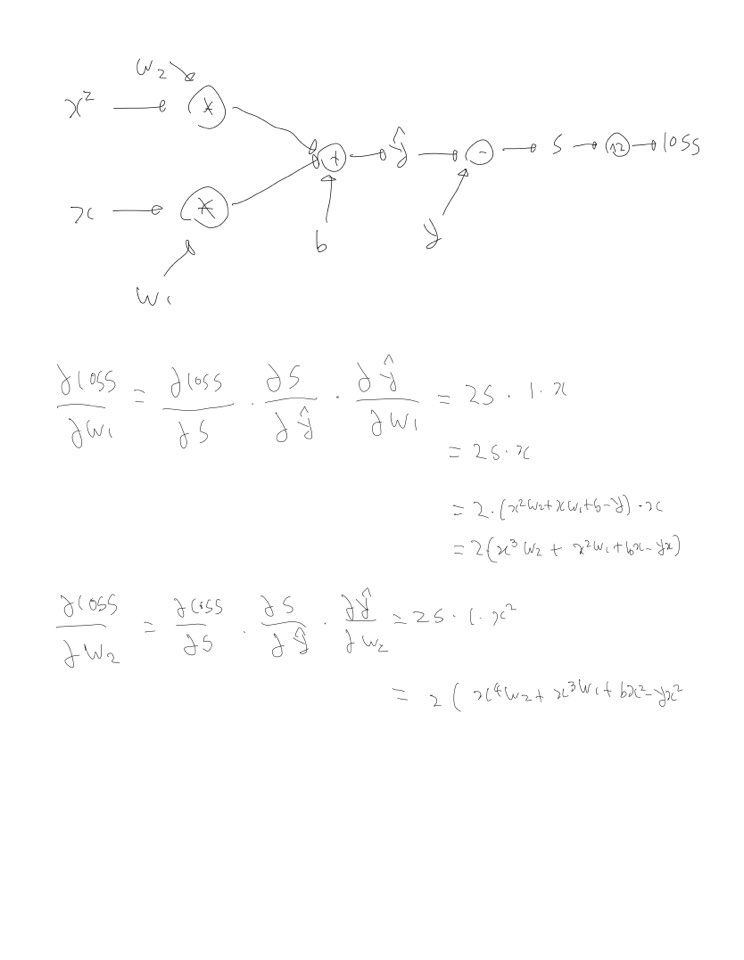 w₂
x² * 
+ ŷ - s ^2 loss
x *
b y
w₁
∂loss/∂w₁ = ∂loss/∂s · ∂s/∂ŷ · ∂ŷ/∂w₁ = 2s · 1 · x
= 2s · x
= 2 · (x²w₂+xw₁+b-y) · x
= 2(x³w₂ + x²w₁+bx-yx)
∂loss/∂w₂ = ∂loss/∂s · ∂s/∂ŷ · ∂ŷ/∂w₂ = 2s · 1 · x²
= 2 ( x⁴w₂ + x³w₁ + bx²-yx²